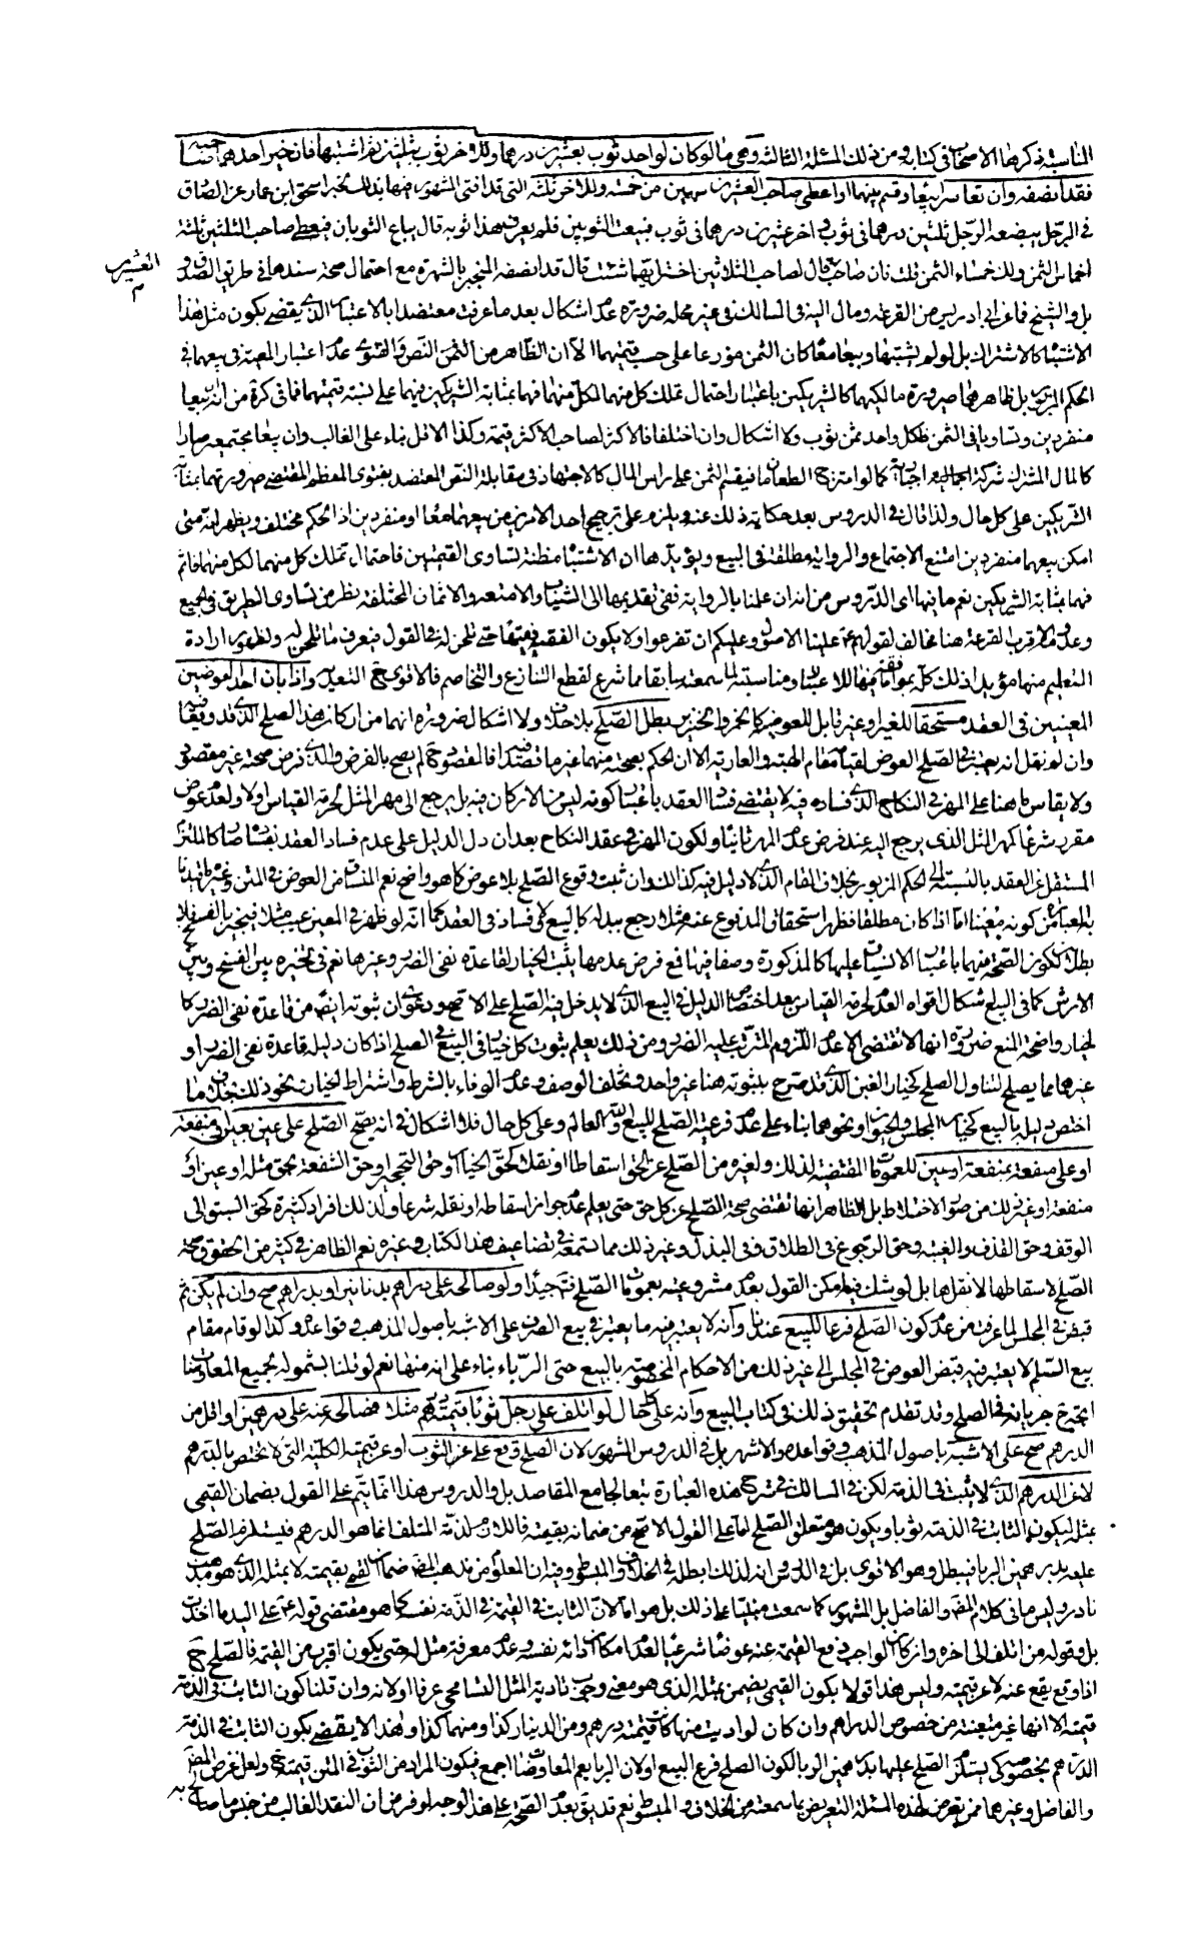 المناسبة ذكرها الاصحاب في كتابه ومن ذلك المسئلة الثالثة وهي ما لو كان لواحد ثوب بعشرين درهما وللاخر ثوب بثلثين ثم اشتبها فان خير احدهما صاحبه
فقد انصفه وان تعاسرا بيعا وقسم بينهما او اعطى صاحب العشرين سهمين من خمسة وللاخر ثلثة التي قد افتى المشهور فيها بذلك لخبر اسحق ابن عمار عن الصادق
في الرجل يبضعه الرجل ثلثين درهما في ثوب واخر عشرين درهما في ثوب فبعث الثوبين فلم يعرف هذا ثوبه قال يباع الثوبان فيعطى صاحب الثلثين ثلثة
اخماس الثمن ولك خمساء الثمن قلت فان صاحب قال لصاحب الثلاثين اختر ايهما شئت قال قد انصفه المنجبر بالشهرة مع احتمال صحة سندها في طريق الصدوق
العشرين
بل والشيخ فما عن ابن ادريس من القرعة ومال اليه في المسالك في غير محله ضرورة عدم اشكال بعد ما عرفت معتضدا بالاعتبار الذي يقضي بكون مثل هذا
الاشتباه كالاشتراك بل لو لم يشتبها وبيعا معا كان الثمن موزعا على حسب قيمتهما الا ان الظاهر من الثمن النص والفتوى عدم اعتبار المعية في بيعهما في
الحكم المزبور بل ظاهرهما صيرورة مالكيهما كالشريكين باعتبار احتمال تملك كل منهما لكل منهما فهما بمثابة الشريكين فيهما على نسبة قيمتهما فما في كرة من انه ان بيعا
منفردين وتساويا في الثمن فلكل واحد ثمن ثوب ولا اشكال وان اختلفا فالاكثر لصاحب الاكثر قيمة وكذا الاقل بناء على الغالب وان بيعا مجتمعين صارا
كالمال المشترك شركة اجبارية كما لو امتزج الطعامان فيقسم الثمن على راس المال كالاجتهاد في مقابلة النص المعتضد بفتوى المعظم المقتضي صيرورتهما بمثابة
الشريكين على كل حال ولذا قال في الدروس بعد حكاية ذلك عنه ويلزم على ترجيح احد الامرين من بيعهما معا او منفردين اذ الحكم مختلف ويظهر انه متى
امكن بيعهما منفردين امتنع الاجتماع والرواية مطلقة في البيع ويؤيدها ان الاشتباه مظنة تساوى القيمتين فاحتمال تملك كل منهما لكل منهما قائم
فهما بمثابة الشريكين نعم ما فيها اى الدروس من انه ان عملنا بالرواية ففي تعديها الى الثياب والامتعة والاثمان المختلفة نظر من تساوى الطريق في الجميع
وعدمه والاقرب القرعة هنا مخالف لقولهم ع علينا الاصول وعليكم ان تفرعوا ولا يكون الفقيه فقيها حتى تلحن له في القول فيعرف ما تلحن له ولظهور ارادة
التعليم منها مؤيدا ذلك كله بموافقتها للاعتبار ومناسبته لما سمعته سابقا مما شرع لقطع التنازع والتخاصم فالاقوى ح التعدية واذا بان احد العوضين
المعينين في العقد مستحقا للغير او غير قابل للعوضية كالخمر والخنزير بطل الصلح بلا خلاف ولا اشكال ضرورة انهما من اركان هذا الصلح الذي قد وقع
وان لم نقل انه يعتبر في الصلح العوض لقيامه مقام الهبة والعارية الا ان الحكم بصحته منهما غير ما قصد اذ المقصود ح لم يصح بالفرض والذي فرض صحته غير مقصود
ولا يقاس ما هنا على المهر في النكاح الذي فساده فيه لا يقتضي فساد العقد باعتبار كونه ليس من الاركان فيه بل يرجع الى مهر المثل لحرمة القياس اولا ولعدم عوض
مقرر شرعا كمهر المثل الذي يرجع اليه عند فرض عدم المهر ثانيا ولكون المهر في عقد النكاح بعد ان دل الدليل على عدم فساد العقد بفساده كالملتزم
المستقل عن العقد بالنسبة الى الحكم المزبور بخلاف المقام الذي لا دليل فيه كذلك وان ثبت وقوع الصلح بلا عوض كما هو واضح نعم المنساق من العوض في المتن وغيره ما قيدنا
به العبارة من كونه معينا اما اذا كان مطلقا فظهر استحقاق المدفوع عنه مثلا رجع ببدله كالبيع لا فساد في العقد كما انه لو ظهر في المعين عيب مثلا فيتخير بالفسخ فلا
بطلان لكون الصحة فيهما باعتبار الانسياق عليها كالمذكورة وصفا فيها فمع فرض عدمها يثبت الخيار لقاعدة نفى الضرر وغيرها نعم في تخييره بين الفسخ وبين
الارش كما في البيع اشكال اقواه العدم لحرمة القياس بعد اختصاص الدليل في البيع الذي لا يدخل فيه الصلح على الاصح ودعوى ان ثبوته ايضا من قاعدة نفى الضرر كا
لخيار واضحة المنع ضرورة انها لا تقتضي الا عدم اللزوم المترتب عليه الضرر ومن ذلك يعلم ثبوت كل خيار في البيع في الصلح اذا كان دليله قاعدة نفى الضرر او
غيرها مما يصلح لتناول الصلح كخيار الغبن الذي قد صرح بثبوته هنا غير واحد وتخلف الوصف وعدم الوفاء بالشرط واشتراط الخيار ونحو ذلك بخلاف ما
اختص دليله بالبيع كخيار المجلس والحيوان ونحوهما بناء على عدم فرعية الصلح للبيع والله العالم وعلى كل حال فلا اشكال في انه يصح الصلح على عين بعين او منفعة
او على منفعة بمنفعة او عين للعمومات المقتضية لذلك ولغيره من الصلح عن الحق اسقاطا او نقلا كحق الخيار وحق التحجير او حق الشفعة بحق مثله او عين او
منفعة او غير ذلك من صور الاختلاط بل الظاهر انها تقتضى صحة الصلح عن كل حق حتى يعلم عدم جواز اسقاطه او نقله شرعا ولذلك افراد كثيرة كحق السبق الى
الوقف وحق القذف والغيبة وحق الرجوع في الطلاق وفي البذل وغير ذلك مما تسمعه في تضاعيف هذا الكتاب وغيره نعم الظاهر في كثير من الحقوق صحة
الصلح لاسقاطها لا نقلها بل لو شك فيه امكن القول بعدم مشروعيته بعمومات الصلح فتامل جيدا ولو صالحه على دراهم بدنانير او بدراهم صح وان لم يكن ثم
قبض في المجلس لما عرفت من عدم كون الصلح فرعا للبيع عندنا وانه لا يعتبر فيه ما يعتبر في بيع الصرف على الاشبه باصول المذهب وقواعده وكذا لو قام مقام
بيع السلم لا يعتبر فيه قبض العوض في المجلس الى غير ذلك من الاحكام المختصة بالبيع حتى الرباء بناء على انه منها نعم لو قلنا بشموله لجميع المعاوضات
اتجه ح جريانه في الصلح وقد تقدم تحقيق ذلك في كتاب البيع وانه على كل حال لو اتلف على رجل ثوبا قيمته درهم مثلا فصالحه عنه على درهمين او اقل من
الدرهم صح على الاشبه باصول المذهب وقواعده والاشهر بل في الدروس المشهور لان الصلح وقع على عين الثوب او عن قيمته الكلية التي لا تختص بالدرهم
لا عن الدرهم الذي لا يثبت في الذمة لكن في المسالك في شرح هذه العبارة تبعا لجامع المقاصد بل والدروس هذا انما يتم على القول بضمان القيمي
بمثله ليكون الثابت في الذمة ثوبا ويكون هو متعلق الصلح اما على القول الاصح من ضمانه بقيمته فاللازم لذمة المتلف انما هو الدرهم فيستلزم الصلح
عليه بدرهمين الربا فيبطل وهو الاقوى بل في الدروس انه لذلك ابطله في الخلاف والمبسوط وفيه ان المعلوم من مذهب المصنف ضمان القيمي بقيمته لا بمثله الذي هو مذهب
نادر وليس ما في كلام المصنف والفاضل بل المشهور كما سمعت مبنيا على ذلك بل هو اما لان الثابت في القيمة في الذمة نفسه كما هو مقتضى قوله ع على اليد ما اخذت
بل وقوله من اتلف الى اخره وان كان الواجب دفع القيمة عنه عوضا شرعيا لعدم امكان ادائه نفسه وعدم معرفة مثل له حتى يكون اقرب من القيمة فالصلح ح
اذا وقع يقع عنه لا عن قيمته وليس هذا قولا بكون القيمي يضمن بمثله الذي هو بمعنى وجوب تادية المثل التسامحي عرفا او لانه وان قلنا كون الثابت في الذمة
قيمته الا انها غير متعينة من خصوص الدراهم وان كان لو اديت منها كانت قيمته درهم ومن الدينار كذا ومنهما كذا وهذا لا يقضي بكون الثابت في الذمة
الدرهم بخصوصه كي يستلزم الصلح عليها بدرهمين الربا لكون الصلح فرع البيع او لان الربا يعم المعاوضات اجمع فيكون المراد من الثوب في المتن قيمته ح ولعل غرض المصنف
والفاضل وغيرهما ممن تعرض لهذه المسئلة التعريض بما سمعته من الخلاف والمبسوط نعم قد يق بعدم الصحة على هذا الوجه لو فرض ان النقد الغالب من جنس ما صالح به